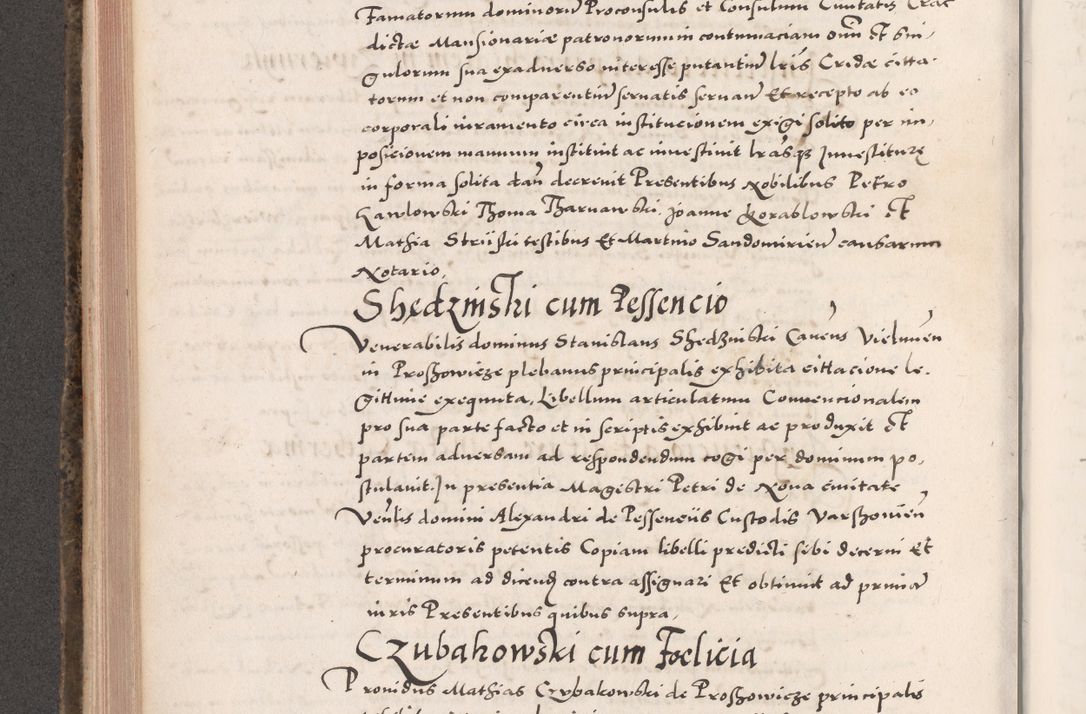 Famatorum dominorũ Proconsulis et Consulum Civitatis Crac
dictæ Mansionariæ patronorum in contumaciam oĩm Et sin,
gulorum sua ex adverso interesse putantiũ lrĩs Cridæ citta,
torum et non comparentiũ servatis servañ Et recepto ab eo
corporali iuramento circa institucionem exigi solito per im,
posicionem manuum instituit ac investivit lrãsqꝫ Investituræ
in forma solita dañ decrevit Presentibus Nobilibus Petro
Kawlowski Thoma Tharnawski, Joanne Korablowski Et
Mathia Strüski testibus Et Martino Sandomirieñ causarum
Notario,
Shedzinski cum Pessencio
Venerabilis dominus Stanislaus Shedzinski Caneñs Vielunen
in Proshowicze plebanus principalis exhibita cittacione le,
gittime exequuta, Libellum articulatum Convencionalem
pro sua parte facto et in scriptis exhibuit ac produxit Et
partem adversam ad respondendum cogi per dominum po,
stulavit. In presentia Magistri Petri de Nova civitate
Veñlis domini Alexandri de Pesseneüs Custodis Varshovieñ
procuratoris petentis Copiam libelli predicti sibi decerni Et
terminum ad dicendꝫ contra assignari Et obtinuit ad primã
iuris Presentibus quibus supra,
Czubakowski cum Foelicia
Providus Mathias Czubakowski de Proshowicze principalis